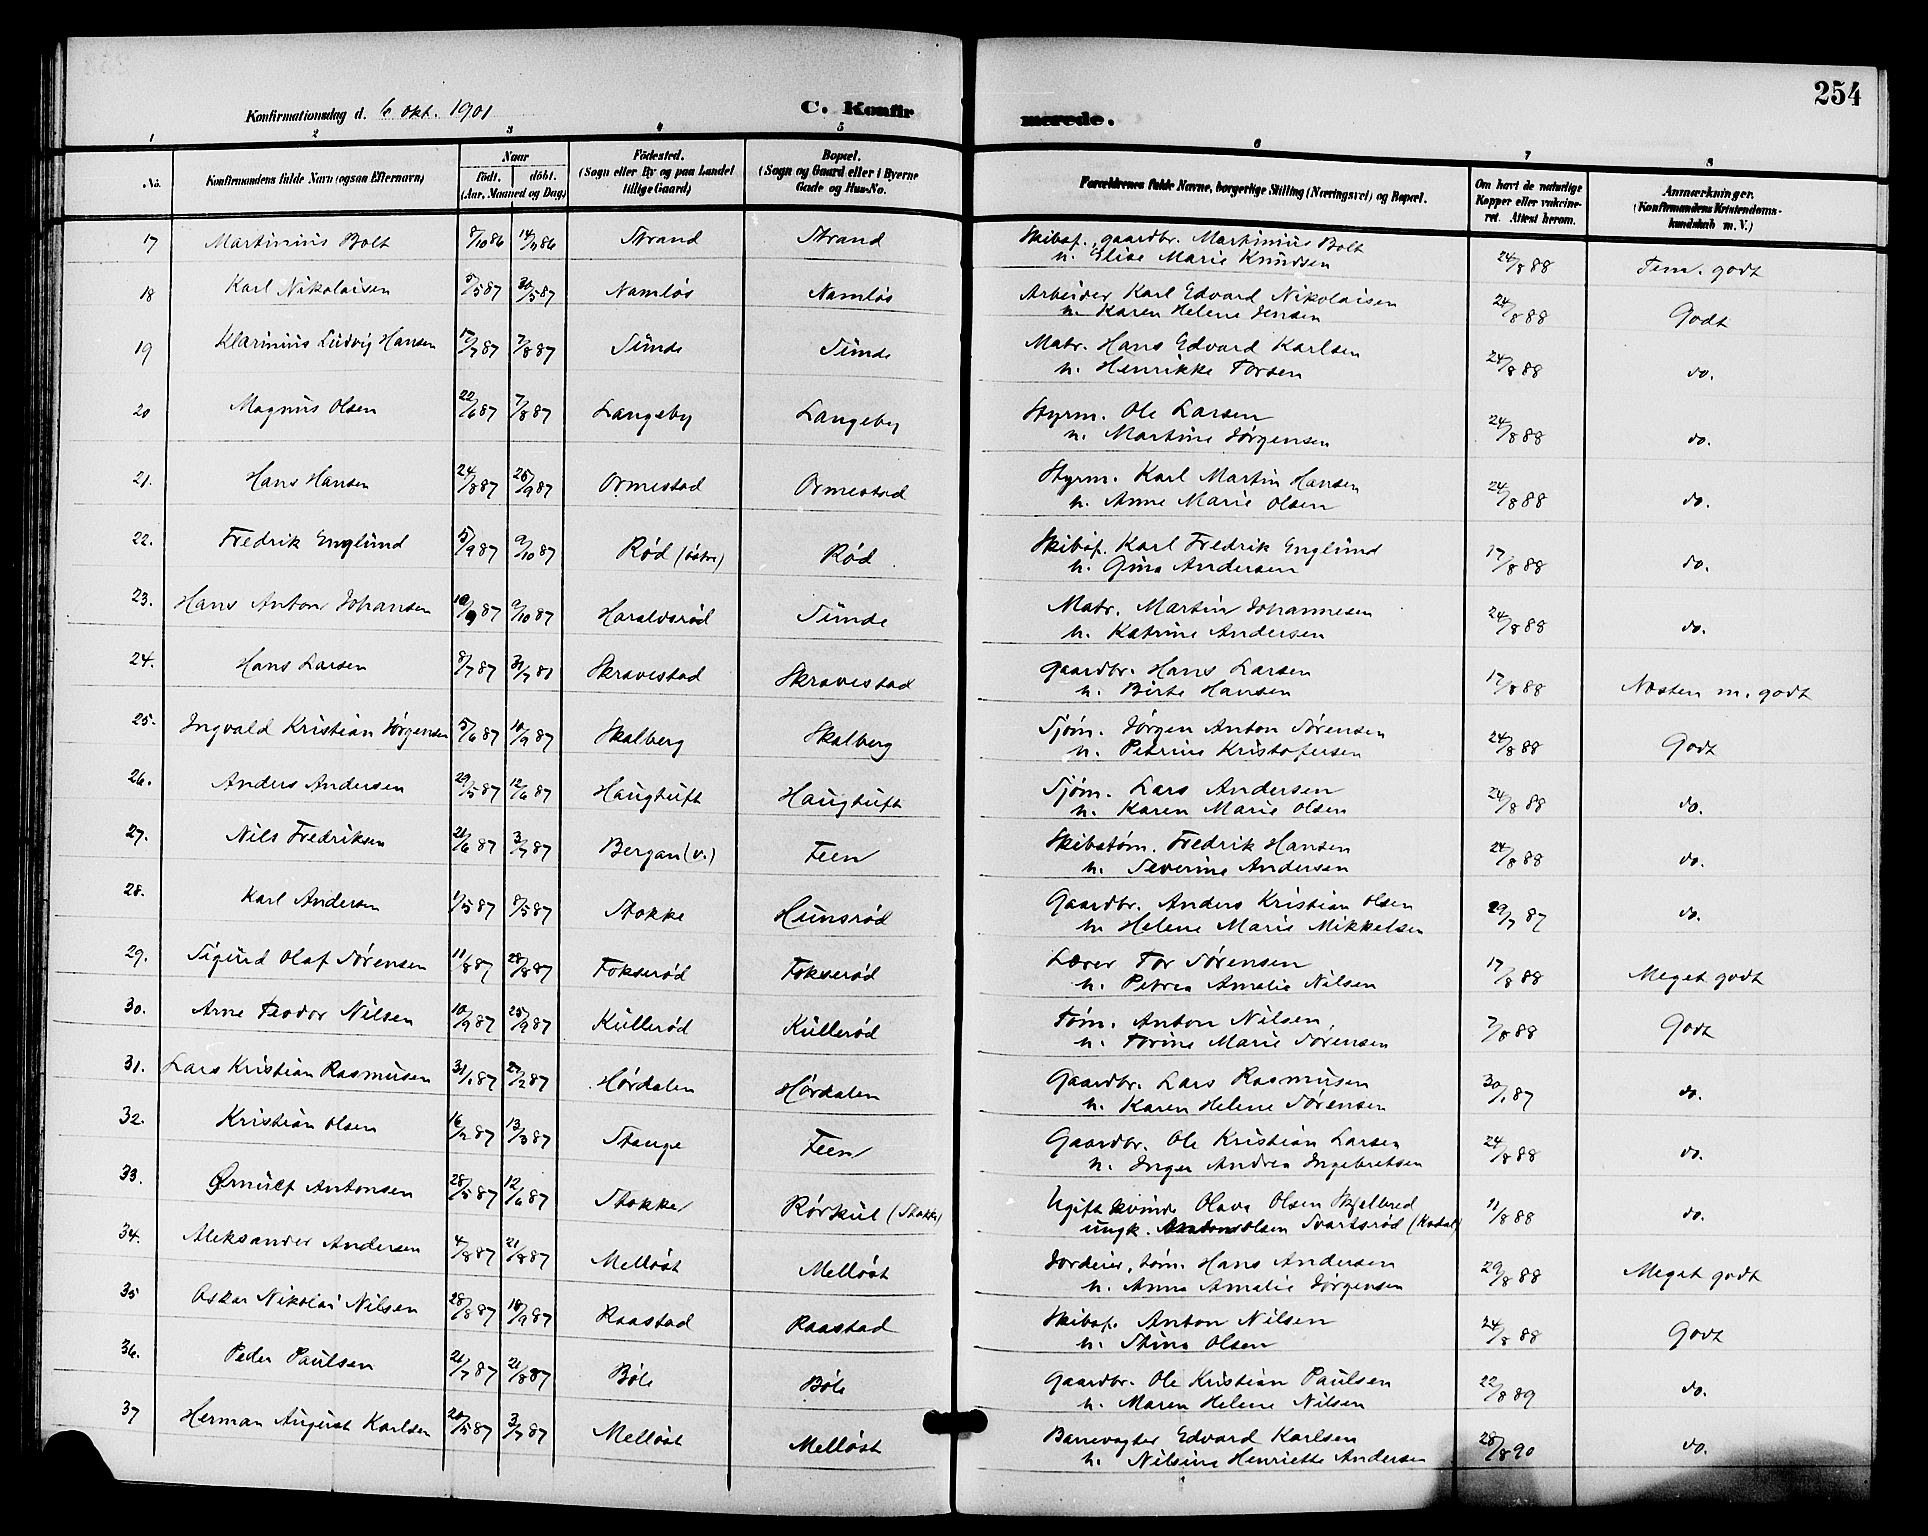 254
Konfirmationsdag d. 6 okt. 1901
C. Konfirmerede.
1 2 3 4 5 6 7 8
No.
Konfirmandens fulde Navn (ogsaa Efternavn)
Naar
født. døbt.
(Aar, Maaned og Dag)
Födested.
(Sogn eller By og paa Landet
tillige Gaard)
Bopæl.
(Sogn og Gaard eller i Byerne
Gade og Hus-No.
Forældrenes fulde Navne, borgerlige Stilling (Næringsvei) og Bopæl.
Om havt de naturlige
Kopper eller vakcine-
ret. Attest herom.
Anmærkninger.
(Konfirmandens Kristendoms-
kundskab m. V.)
17 Martinius Bolt 8/10 86 14/11 86 Strand Strand Skibsf., gaardbr. Martinius Bolt
u. Elise Marie Knudsen 24/8 88 Tem. godt
18 Karl Nikolaisen 5/5 87 30/5 87 Namløs Namløs Arbeider Karl Edvard Nikolaisen
u. Karen Helene Jensen 24/8 88 Godt
19 Klarinius Ludvig Hansen 17/7 87 7/8 87 Sunde Sunde Matr. Hans Edvard Karlsen
u. Henrikke Torsen 24/8 88 do.
20 Magnus Olsen 22/6 87 7/8 87 Langeby Langeby Styrm. Ole Larsen
u. Martine Jørgensen 24/8 88 do.
21. Hans Hansen 24/8 87 25/9 87 Ormestad Ormestad Styrm. Karl Martin Hansen
u. Anne Marie Olsen 24/8 88 do.
22. Fredrik Englund 5/9 87 9/10 87 Rød (østre) Rød Skibsf. Karl Fredrik Englund
u. Gina Andersen 17/8 88 do.
23. Hans Anton Johansen 10/9 87 9/10 87 Haraldsrød Sunde Matr. Martin Johannesen
u. Katrine Andersen 24/8 88 do.
24. Hans Larsen 8/7 87 31/7 87 Skravestad Skravestad Gaardbr. Hans Larsen
u. Birte Hansen 17/8 88 Næsten m. godt
25. Ingvald Kristian Jørgensen 5/6 87 10/9 87 Skalberg Skalberg Sjøm. Jørgen Anton Sørensen
u. Petrine Kristofersen 24/8 88 Godt
26. Anders Andersen 29/5 87 12/6 87 Haugtuft Haugtuft Sjøm. Lars Andersen
u. Karen Marie Olsen 24/8 88 do.
27. Nils Fredriksen 21/6 87 3/7 87 Bergan (v.) Feen Skibstøm. Fredrik Hansen
u. Severine Andersen 24/8 88 do.
28. Karl Andersen 1/5 87 8/5 87 Stokke Hunsrød Gaardbr. Anders Kristian Olsen
u. Helene Marie Mikkelsen 29/7 87 do.
29. Sigurd Olaf Sørensen 11/8 87 28/8 87 Fokserød Fokserød Lærer Tor Sørensen
u. Petrea Amalie Nilsen 17/8 88 Meget godt
30. Arne Teodor Nilsen 10/9 87 25/9 87 Kullerød Kullerød Tøm. Anton Nilsen,
u. Torine Marie Sørensen 7/8 88 Godt
31. Lars Kristian Rasmussen 31/1 87 27/2 87 Hørdalen Hørdalen Gaardbr. Lars Rasmusen
u. Karen Helene Sørensen 30/1 87 do.
32. Kristian Olsen 16/2 87 13/3 87 Stange Feen Gaardbr. Ole Kristian Larsen
u. Inger Andrea Ingebretsen 24/8 88 do.
33. Ørnulf Antonsen 28/5 87 12/6 87 Stokke Rørkul (Stokke) Ugift kvinde Olava Olsen Skjelbred
ungk. Anton Olsen Svartsrød (Kodal) 11/8 88 do.
34. Aleksander Andersen 4/8 87 21/8 87 Melløst Melløst Jordeier, tøm. Hans Andersen
u. Anna Amalie Jørgensen 29/8 88 Meget godt
35 Oskar Nikolai Nilsen 28/8 87 18/9 87 Raastad Raastad Skibsf. Anton Nilsen
u. Stina Olsen 24/8 88 Godt
36. Peder Paulsen 21/7 87 21/8 87 Bøle Bøle Gaardbr. Ole Kristian Paulsen
u. Maren Helene Nilsen 22/8 89 do.
37 Herman August Karlsen 20/5 87 3/7 87 Melløst Melløst Banevogter Edvard Karlsen
u. Nilsine Henriette Andersen 28/8 90 do.